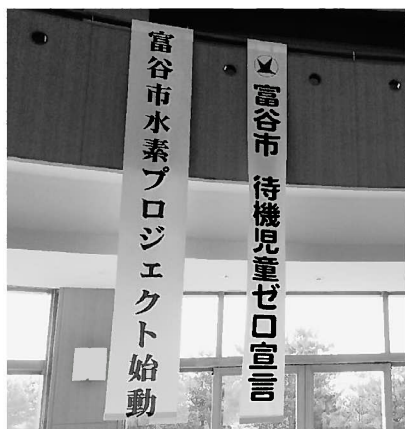 富谷市 待機児童ゼロ宣言
富谷市水素プロジェクト始動